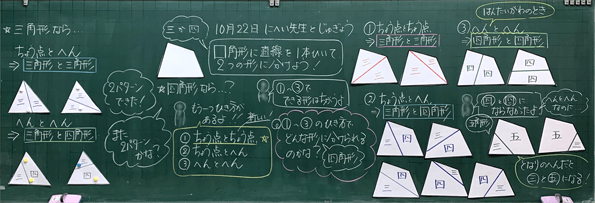 ☆三角形なら…
ちょう点とへん
三角形と三角形
三
三
三
三
へんとへん
三角形と四角形
三
四
三
四
2パターンできた!
また2パターンかな?
三か四
10月22日 にへい先生とじゅぎょう
□角形に直線を1本ひいて
2つの形に分けよう!
☆四角形なら…?
もう一つひき方があるよ!!
①ちょう点とちょう点
②ちょう点とへん
③へんとへん
①~③で
できる形はちがうよ
①~③のひき方で
どんな形に分けられる
のかな?
四角形
①ちょう点とちょう点
三角形と三角形
②ちょう点とへん
三角形と四角形
三
四
はんたいがわのとき
③へんとへん
四角形と四角形
四
四
四
四
四と四に
ならなかったよ
へんとへん
なのに
三角形
五
五
となりのへんだと
三と五になる!